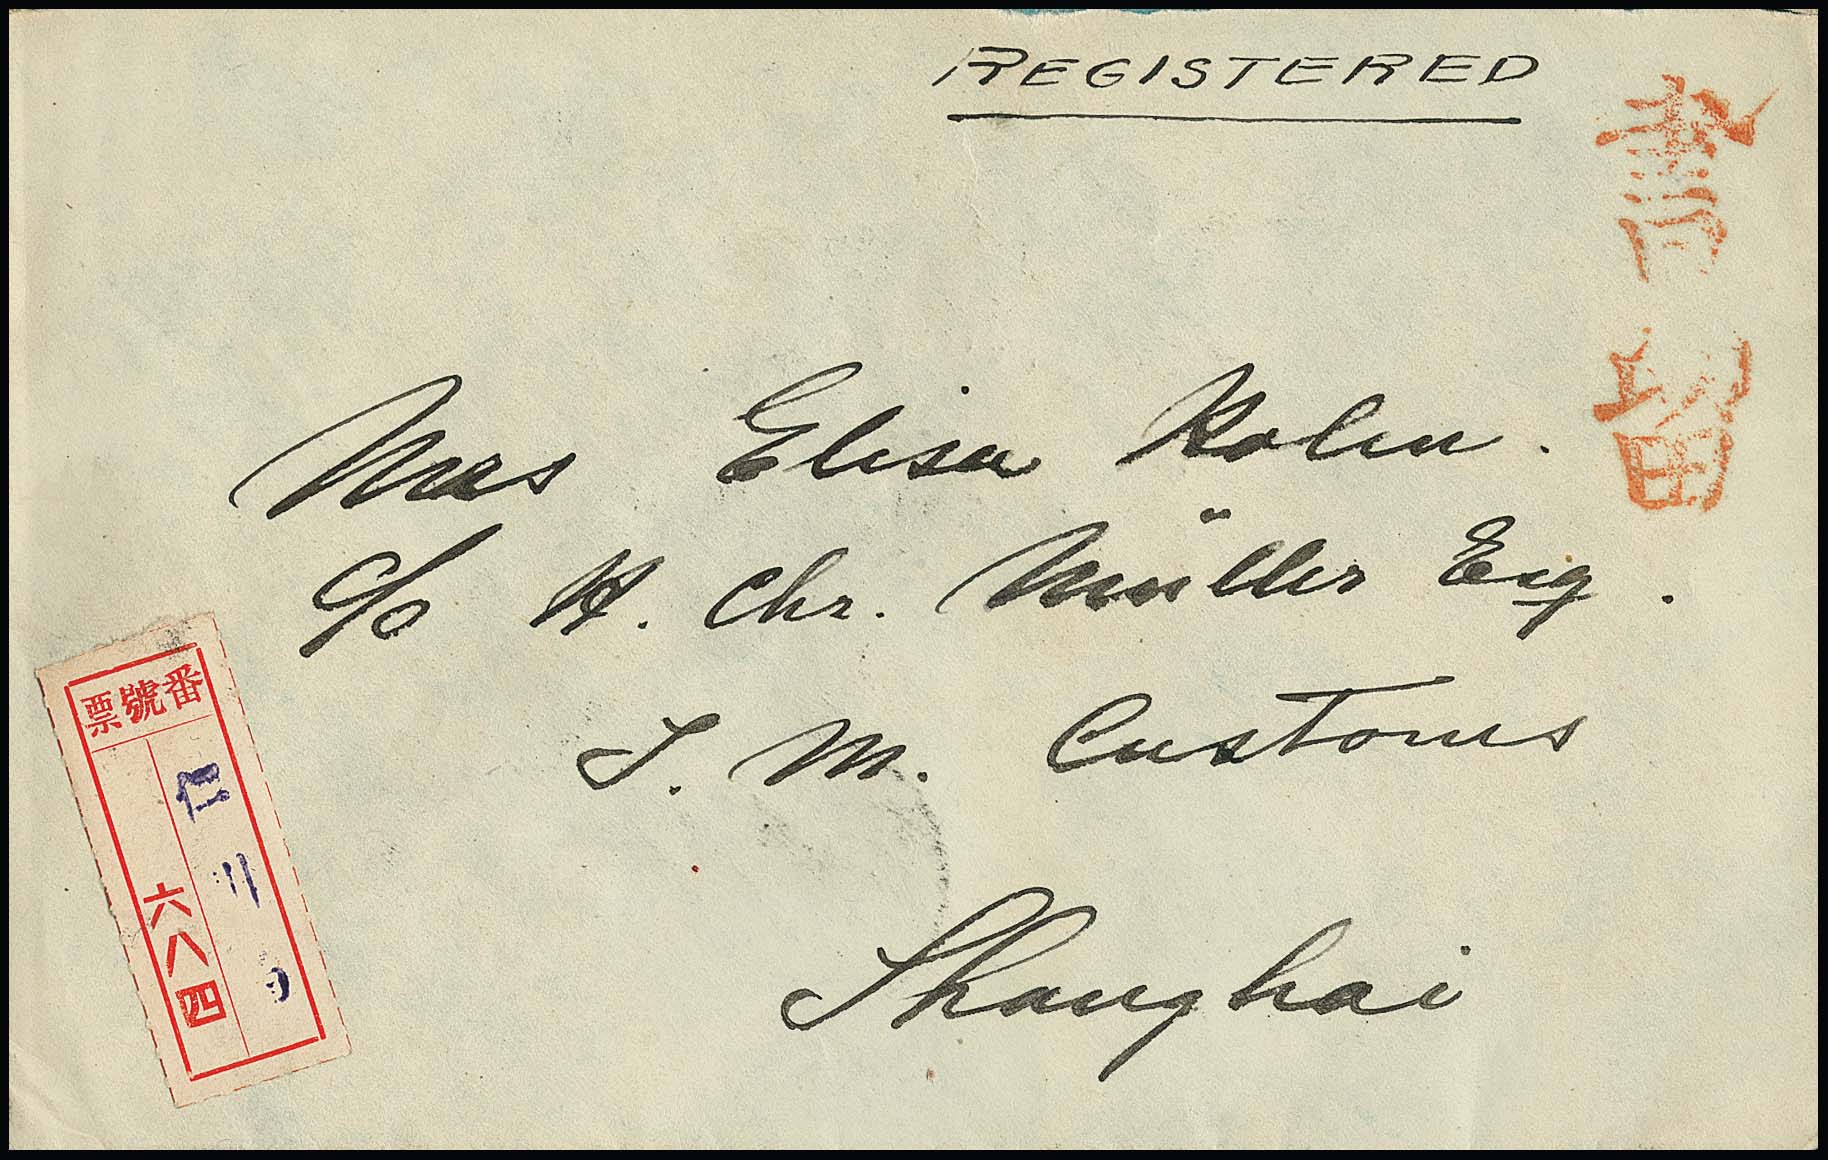 REGISTERED
書留
Mrs Elisa Kolm.
c/o H. Chr. Müller Esq.
I. M. Customs
Shanghai
票號番
仁川
六八四